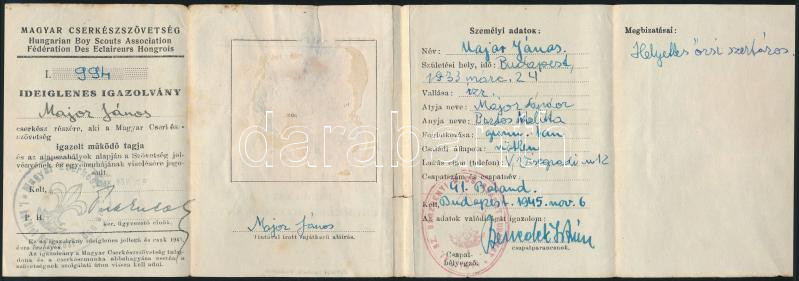 MAGYAR CSERKÉSZSZÖVETSÉG
Hungarian Boy Scouts Association
Fédération Des Eclaireurs Hongrois
I. 994
IDEIGLENES IGAZOLVÁNY
Major János
cserkész részére, aki a Magyar Cserkész-
szövetség
igazolt működő tagja
és az alapszabályok alapján a Szövetség jel-
vényének és egyenruhájának viselésére jogo-
sult.
Kelt,
P. H.
ker. ügyvezető elnök.
Ez az igazolvány ideiglenes jellegű és csak 194
évre érvényes.
Az igazolvány a Magyar Cserkészszövetség tulaj-
dona és a cserkészmunka abbahagyása esetén a
szövetségnek szolgálati úton vissza kell adni.
Major János
Tintával írott sajátkezű aláírás.
Személyi adatok:
Név: Major János.
Születési hely, idő: Budapest,
1933 márc. 24
Vallása: izr.
Atyja neve: Major Sándor
Anyja neve: Bartos Melitta
Foglalkozása: gimn. tan
Családi állapota: nőtlen
Lakás címe (telefon): V. Visegrádi u 12
Csapatszám és csapatnév:
41.
Kelt, Budapest. 1945. nov. 6
Az adatok valódiságát igazolom:
Benedek István
Csapat-
bélyegző.
csapatparancsnok.
Megbizatásai:
Helyettes őrsi szertáros.
darabanth